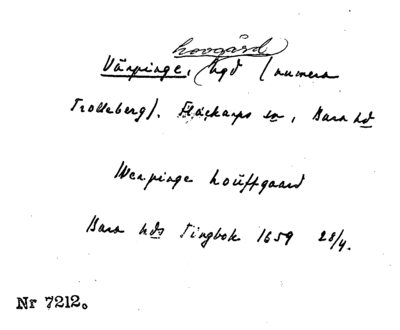 hovgård
Värpinge, hgd (numera
Trolleberg). Fläckarps sn, Bara hd
Werpinge houffgaard
Bara hds Tingbok 1659 28/4.
Nr 7212.